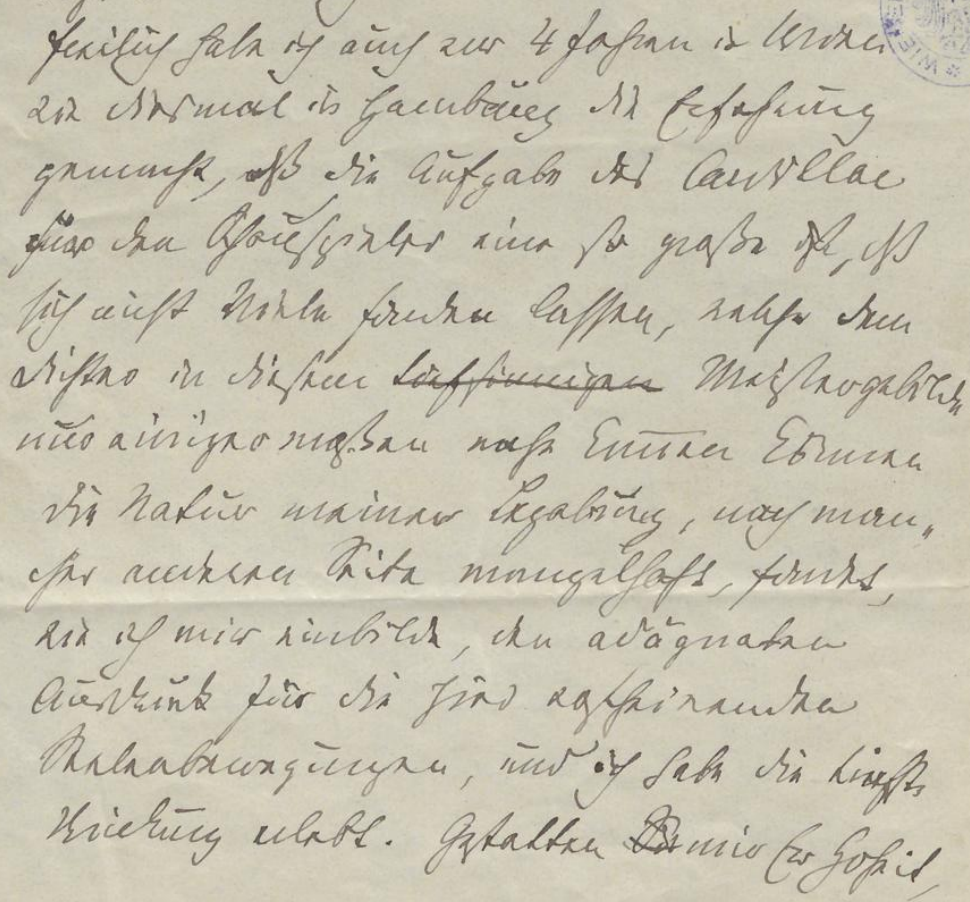 freilich habe ich auch vor 4 Jahren in Wien
wie diesmal in Hamburg die Erfahrung
gemacht, daß die Aufgabe des Cardillac
für den Schauspieler eine so große ist, daß
sich nicht Viele finden lassen, welche dem
Dichter in diesem tiefsinnigen Meistergebilde
nur einigermaßen nahe können
die Natur meiner Begabung, nach man„
cher anderen Seite mangelhaft, findet,
wie ich mir einbilde, den adäquaten
Ausdruck für die hier
Seelenbewegungen, und ich habe die tiefste
Wirkung erlebt. Gestatten Sie mir Ew Hoheit,
WIEN